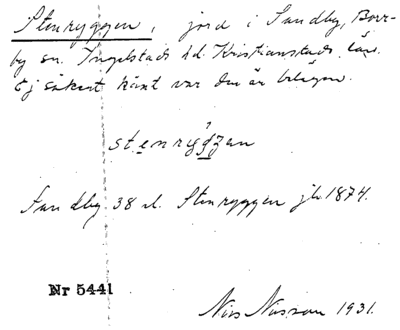 Stenryggen, jord i Sandby, Borr-
by sn. Ingelstads hd. Kristianstads län.
Ej säkert känt var den är belägen.
stenrygzan
Sandby 38 al. Stenryggen jb. 1874.
Nr 5441
Nils Nilsson 1931.